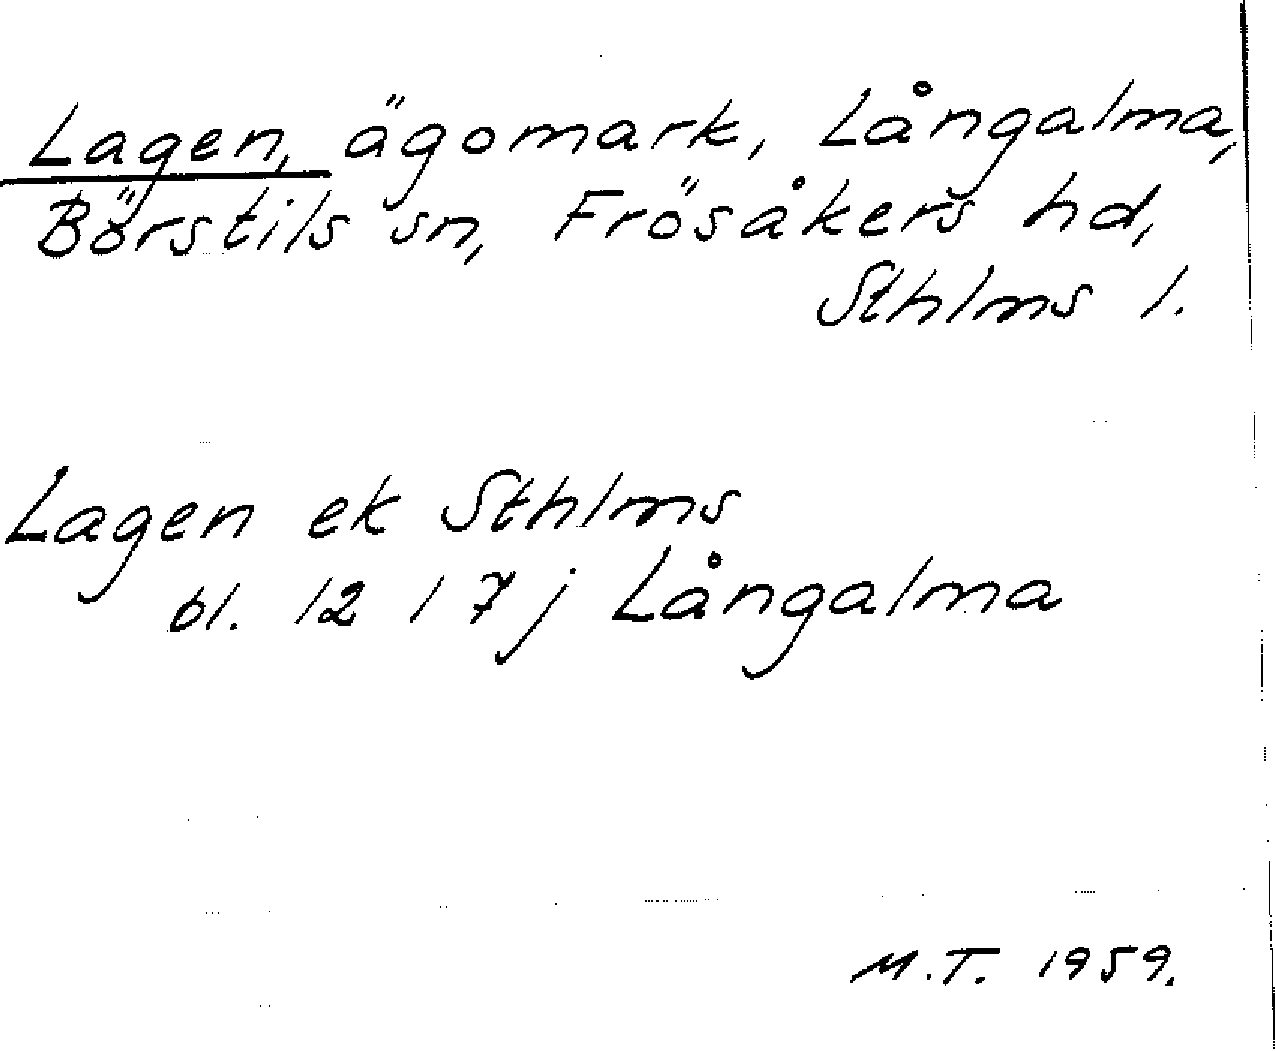 Lagen, ägomark, Långalma,
Börstils sn, Frösåkers hd,
Sthlms l.
Lagen ek Sthlms
bl. 12 17j Långalma
M.T. 1959.